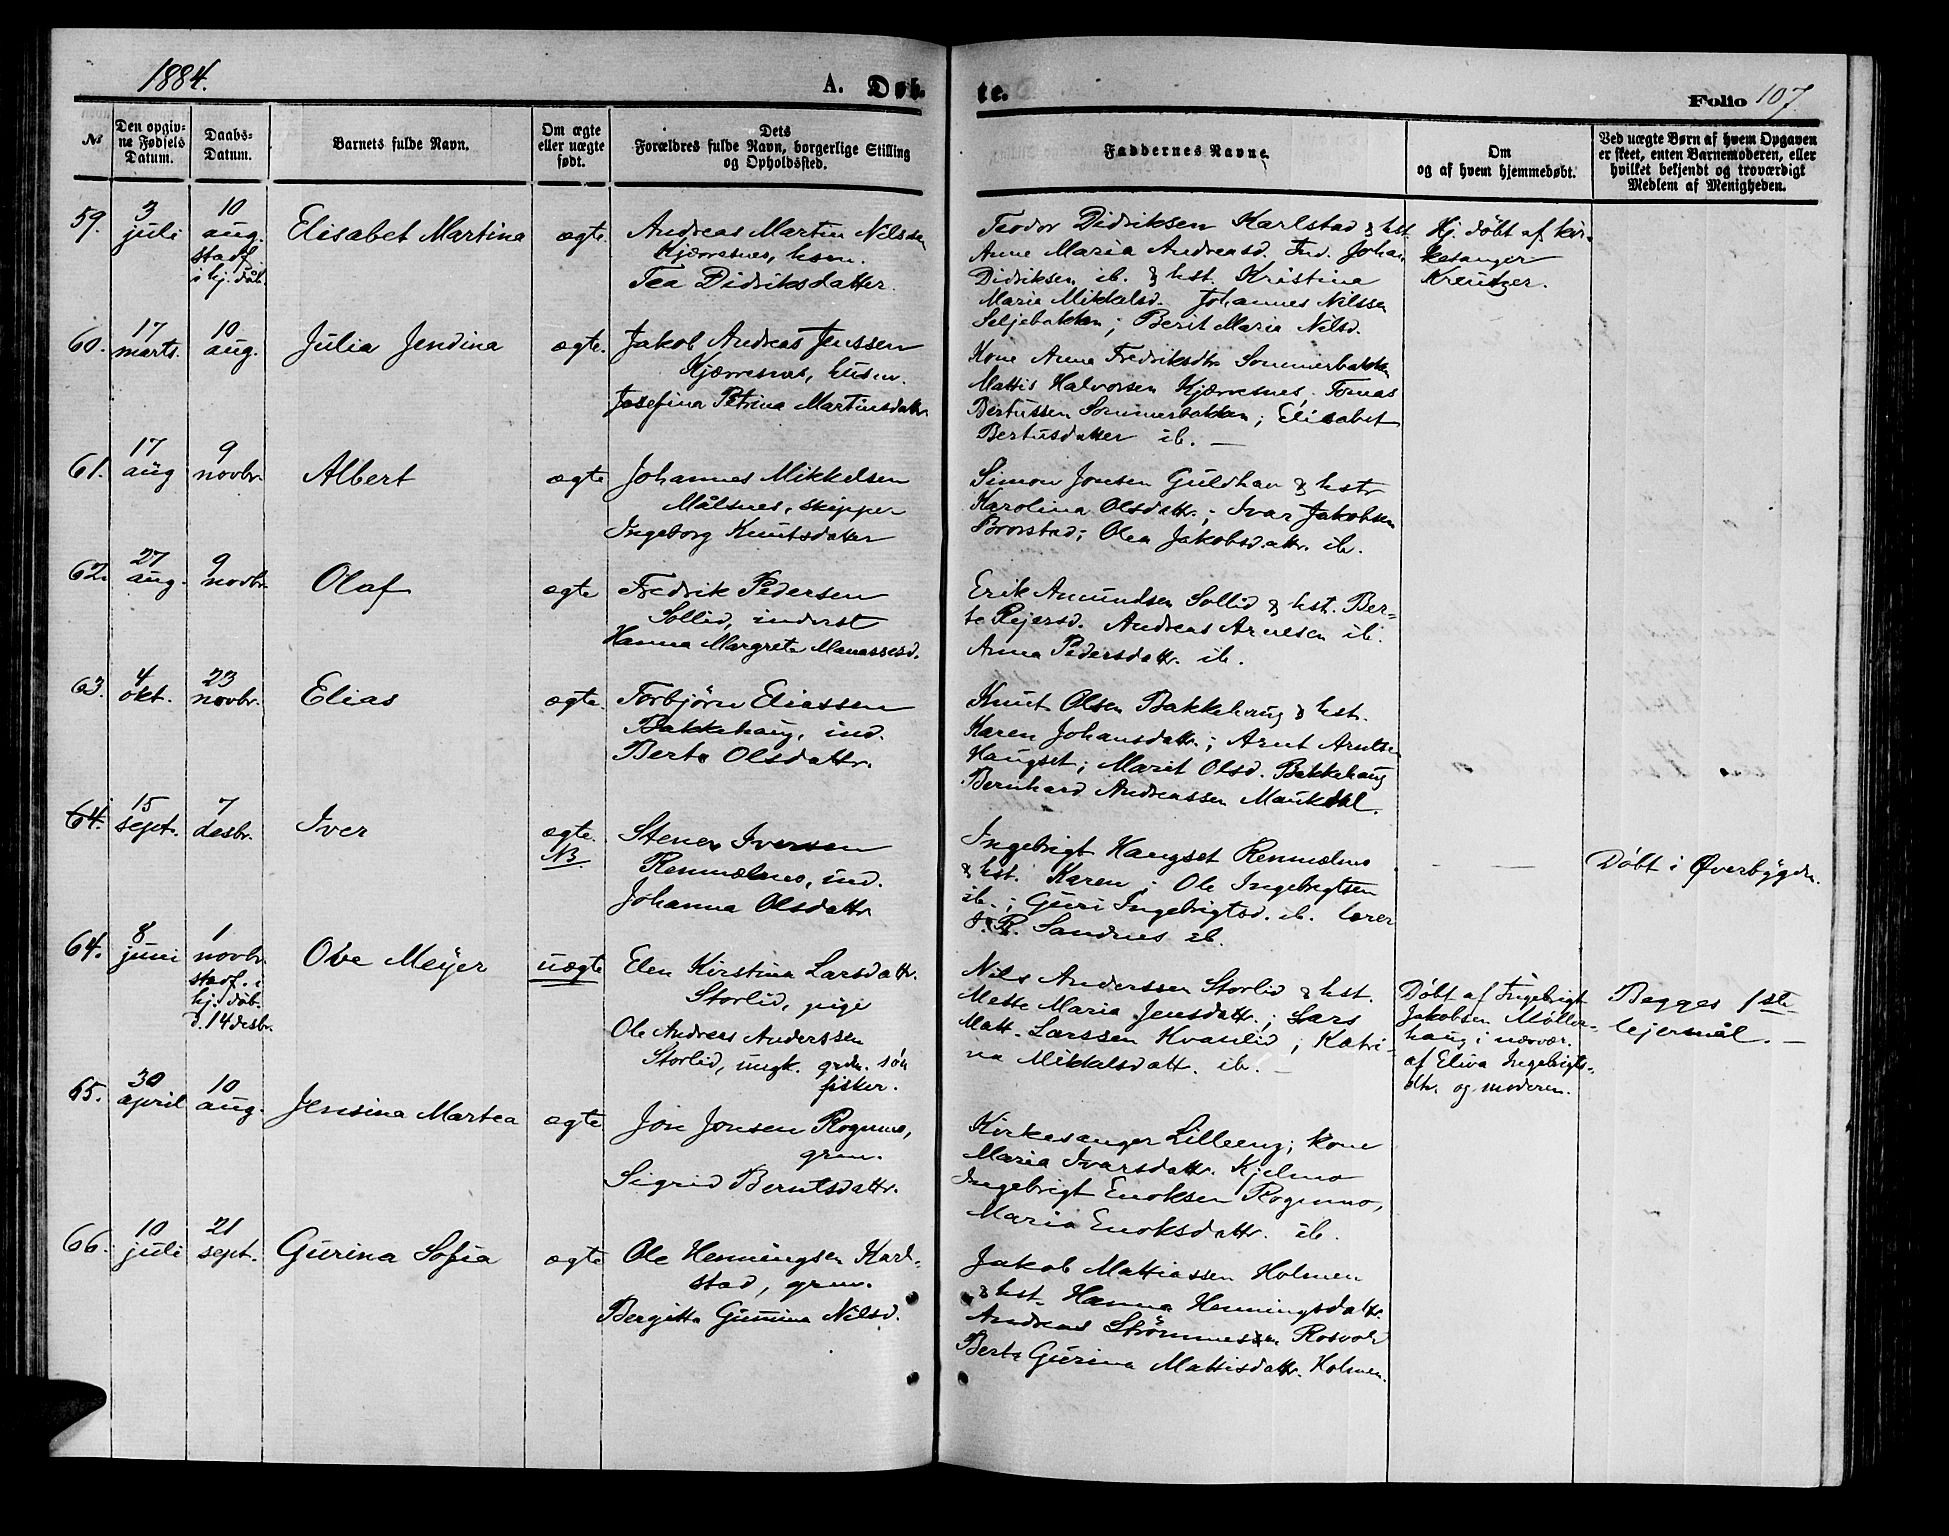 1884.
A. Døb-
te.
Folio 107
№
Den opgiv-
ne Fødsels
Datum.
Daabs-
Datum.
Barnets fulde Navn.
Om ægte
eller uægte
født.
Dets
Forældres fulde Navn, borgerlige Stilling
og Opholdssted.
Faddernes Navne.
Om
og af hvem hjemmedøbt.
Ved uægte Børn af hvem Opgaven
er skeet, enten Barnemoderen, eller
hvilket bekjendt og troværdigt
Medlem af Menigheden.
59.
3
juli
10
aug.
stadf.
i hj. dåb.
Elisabet Martina
ægte.
Andreas Martin Nilsen
Kjærresnes, hsm.
Tea Didriksdatter.
Teodor Didriksen Karlstad & hst.
Anne Maria Andreasd. Ind. Johan
Didriksen ib. & hst. Kristina
Maria Mikkalsd. Johannes Nilssen
Seljebakken; Berit Maria Nilsd.
Hj. döbt af kir-
kesanger
Kreutzer.
60.
17
marts.
10
aug.
Julia Jendina
ægte.
Jakob Andreas Jenssen
Kjærresnes, husm.
Josefina Petrina Martinsdatr.
Kone Anna Fredriksdtr Sommerbakken
Mattis Halvorsen Kjærresnes, Tomas
Bertussen Sommerbakken; Elisabet
Bertusdatter ib. —
61.
17
aug
9
novbr.
Albert
ægte
Johannes Mikkelsen
Målsnes, skipper
Ingeborg Knutsdatter
Simon Jonsen Guldhav & hstr
Karolina Olsdattr.; Ivar Jakobsen
Brorstad; Olea Jakobsdattr. ib.
62.
27
aug.
9
novbr.
Olaf
ægte
Fredrik Pedersen
Sollid, inderst
Hanna Margrete Manassesd.
Erik Amundsen Sollid & hst. Ber-
te Rejersd. Andreas Arnesen ib.
Anna Pedersdattr. ib.
63.
4
okt.
23
novbr.
Elias
ægte.
Torbjørn Eliassen
Bakkehaug, ind.
Berte Olsdattr.
Knut Olsen Bakkehaug & hst.
Karen Johansdattr.; Arnt Arntsen
Haugset; Marit Olsd. Bakkehaug
Bernhard Andreassen Maukdal.
64.
15
septr.
7
desbr.
Iver
ægte.
NB
Stener Iversen
Renmælmo, ind.
Johanna Olsdattr
Ingebrigt Haugset Renmælmo
& hst. Karen; Ole Ingebrigtsen
ib.; Guri Ingebrigtsd. ib. lærer
J. R. Sandnes ib.
— —
Döbt i Øverbygden.
64.
8
juni
1
novbr.
stadf. i
hj. dåb.
d. 14 desbr.
Ove Meyer
uægte
Elen Kirstina Larsdattr.
Storlid, pige
Ole Andreas Anderssen
Storlid, ungk. grdm. sön
fisker.
Nils Anderssen Storlid & hst.
Mette Maria Jensdattr.; Lars
Matt. Larssen Kvanlid; Katri-
na Mikkelsdatt. ib. —
Döbt af Ingebrigt
Jakobsen Möller-
haug i nærvær.
af Eliva Ingebrigts-
dtr. og moderen.
Begges 1ste
lejermål. —
65.
30
april
10
aug.
Jensina Martea
ægte
Jon Jonsen Rognmo,
grm.
Sigrid Berntsdattr.
Kirkesanger Lilleeng; kone
Maria Ivarsdattr. Kjelmo
Ingebrigt Enoksen Rognmo,
Maria Enoksdattr. ib.
66.
10
juli
21
sept.
Gurina Sofia
ægte
Ole Henningsen Karl-
stad, grm.
Bergitte Gurina Nilsd.
Jakob Mattiassen Holmen
& hst. Hanna Henningsdattr.
Andreas Strömmesen Rosvold
Berte Gurina Mattisdattr. Holmen.